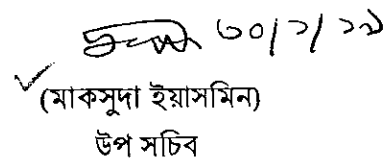 ৩০/১/১৯
(মাকসুদা ইয়াসমিন)
উপ সচিব